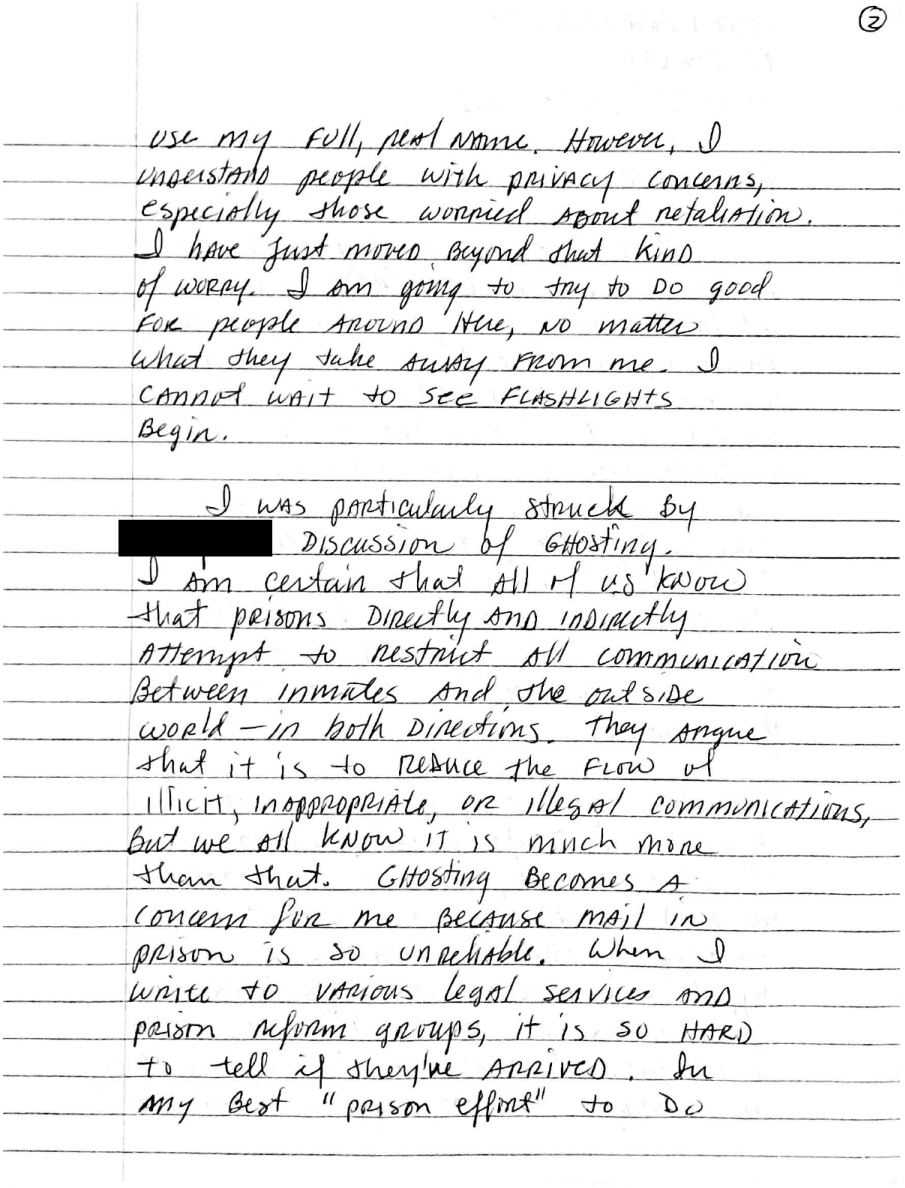 ②
use my full, real name. However, I
understand people with privacy concerns,
especially those worried about retaliation.
I have just moved beyond that kind
of worry. I am going to try to do good
for people around here, no matter
what they take away from me. I
cannot wait to see FLASHLIGHTS
Begin.
I was particularly struck by
Discussion of GHosting.
I am certain that all of us know
that prisons Directly and indirectly
Attempt to restrict all communication
Between inmates and the outside
world – in both Directions. They argue
that it is to reduce the flow of
illicit, inappropriate, or illegal communications,
but we all know it is much more
than that. GHosting Becomes a
concern for me because mail in
prison is so unreliable. When I
write to various legal services and
prison reform groups, it is so HARD
to tell if they've arrived. In
my best "prison effort" to Do